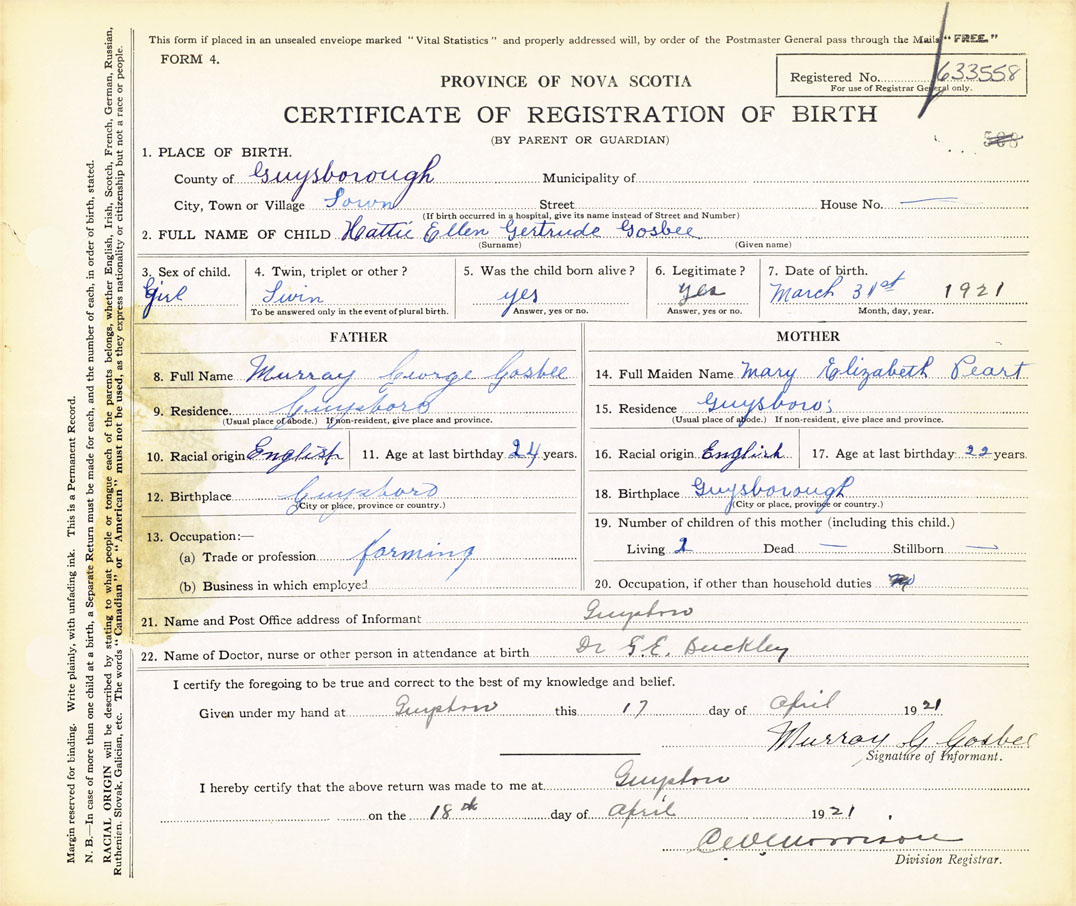 This form if placed in an unsealed envelope marked "Vital Statistics" and properly addressed will, by order of the Postmaster General pass through the Mails "FREE."
FORM 4.
PROVINCE OF NOVA SCOTIA
Registered No. 633558
For use of Registrar General only.
CERTIFICATE OF REGISTRATION OF BIRTH
(BY PARENT OR GUARDIAN)
1. PLACE OF BIRTH.
County of Guysborough Municipality of
City, Town or Village Town Street House No. —
(If birth occurred in a hospital, give its name instead of Street and Number)
2. FULL NAME OF CHILD Hattie Ellen Gertrude Gosbee
(Surname) (Given name)
3. Sex of child. 4. Twin, triplet or other? 5. Was the child born alive? 6. Legitimate? 7. Date of birth.
Girl Twin yes yes March 31st 1921
To be answered only in the event of plural birth. Answer, yes or no. Answer, yes or no. Month, day, year.
FATHER
8. Full Name Murray George Gosbee
9. Residence. Guysboro
(Usual place of abode.) If non-resident, give place and province.
10. Racial origin English 11. Age at last birthday 24 years.
12. Birthplace Guysboro
(City or place, province or country.)
13. Occupation:—
(a) Trade or profession farming
(b) Business in which employed
MOTHER
14. Full Maiden Name Mary Elizabeth Peart
15. Residence Guysboro
(Usual place of abode.) If non-resident, give place and province.
16. Racial origin English 17. Age at last birthday 22 years.
18. Birthplace Guysborough
(City or place, province or country.)
19. Number of children of this mother (including this child.)
Living 2 Dead — Stillborn —
20. Occupation, if other than household duties
21. Name and Post Office address of Informant Guysboro
22. Name of Doctor, nurse or other person in attendance at birth Dr G.E. Buckley
I certify the foregoing to be true and correct to the best of my knowledge and belief.
Given under my hand at Guysboro this 17 day of April 1921
Murray G Gosbee
Signature of Informant.
I hereby certify that the above return was made to me at Guysboro
on the 18th day of April 1921
Morrison
Division Registrar.
Margin reserved for binding. Write plainly, with unfading ink. This is a Permanent Record.
N. B.—In case of more than one child at a birth, a Separate Return must be made for each, and the number of each, in order of birth, stated.
RACIAL ORIGIN will be described by stating to what people or tongue each of the parents belongs, whether English, Irish, Scotch, French, German, Russian,
Ruthenien, Slovak, Galician, etc. The words "Canadian" or "American" must not be used, as they express nationality or citizenship but not a race or people.